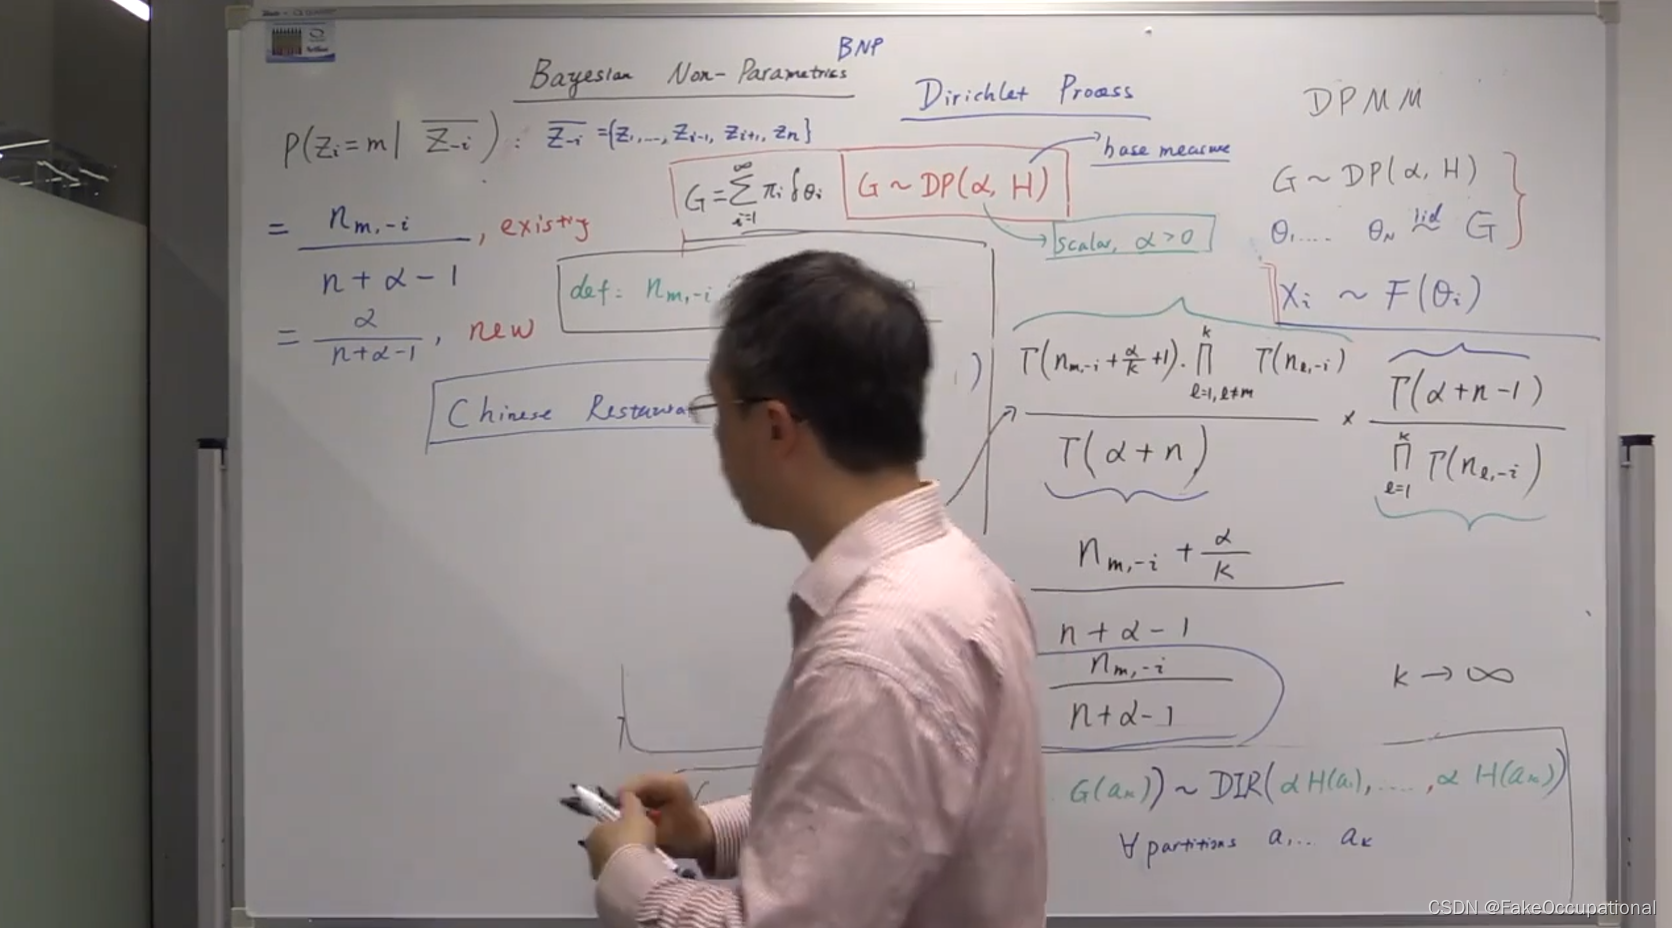 BNP
Bayesian Non-Parametrics
Dirichlet Process
DPMM
P(Zi=m| Z-i) : Z-i = {Z1,..., Zi-1, Zi+1, Zn}
base measure
G = ∑ i=1 ∞ πi δθi
G ~ DP(α, H)
scalar, α > 0
G ~ DP(α, H)
θ1.... θN iid ~ G
Xi ~ F(θi)
= nm,-i / n + α - 1 , existing
= α / n+α-1 , new
def: nm,-i
Chinese Restaura
)
Γ(nm,-i + α/k +1). ∏ l=1, l≠m k Γ(nl,-i) / Γ(α + n) × Γ(α+n-1) / ∏ l=1 k Γ(nl,-i)
nm,-i + α/k
n + α - 1
nm,-i
n+α-1
k → ∞
G(an)) ~ DIR(α H(a1), ...., α H(an))
∀ partitions a1... ak
CSDN @FakeOccupational